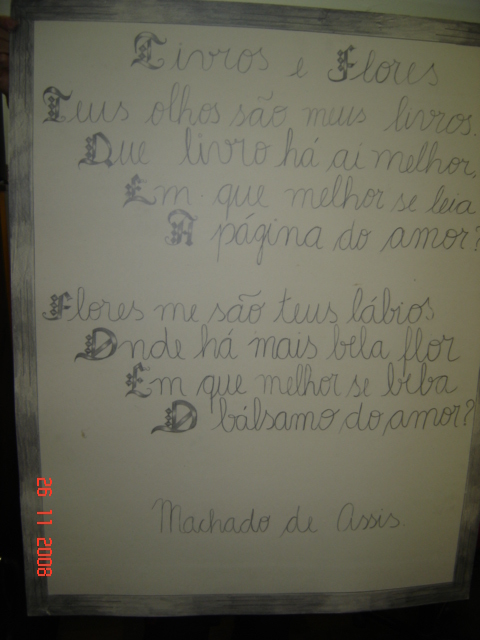 Livros e Flores
Teus olhos são meus livros.
Que livro há ai melhor,
Em que melhor se leia
A página do amor?
Flores me são teus lábios
Onde há mais bela flor
Em que melhor se beba
O bálsamo do amor?
Machado de Assis.
26 11 2008